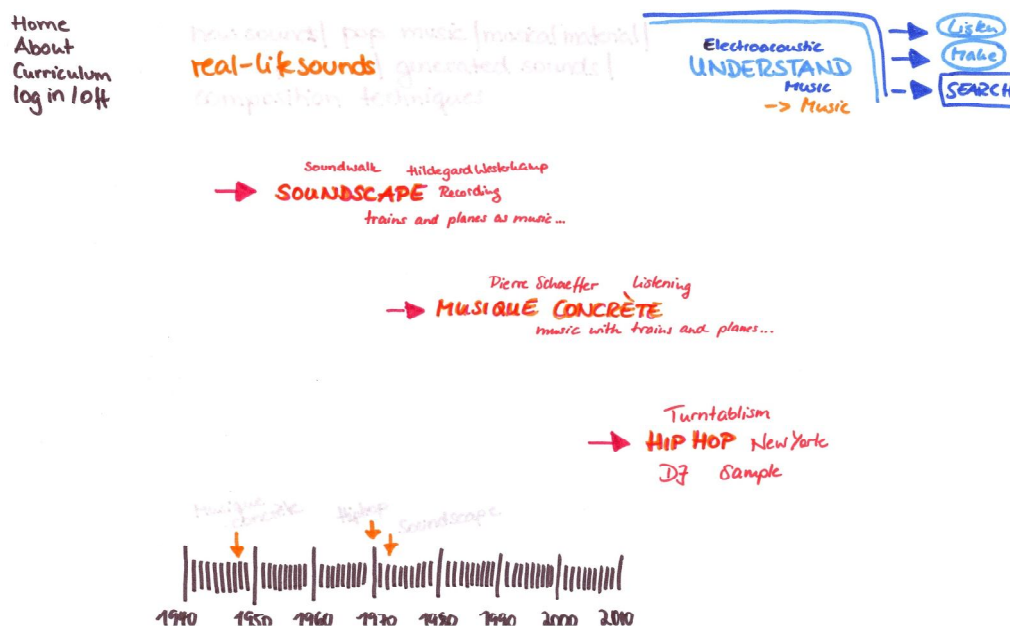 Home
About
Curriculum
log in / off
new sounds / pop music / musical material /
real-life sounds / generated sounds /
composition techniques
Electroacoustic
UNDERSTAND
Music
-> Music
Listen
Make
SEARCH
Soundwalk Hildegard Westerkamp
SOUNDSCAPE Recording
trains and planes as music...
Pierre Schaeffer Listening
MUSIQUE CONCRÈTE
music with trains and planes...
Turntablism
HIP HOP New York
DJ Sample
Musique Concrète Hiphop Soundscape
1940 1950 1960 1970 1980 1990 2000 2010